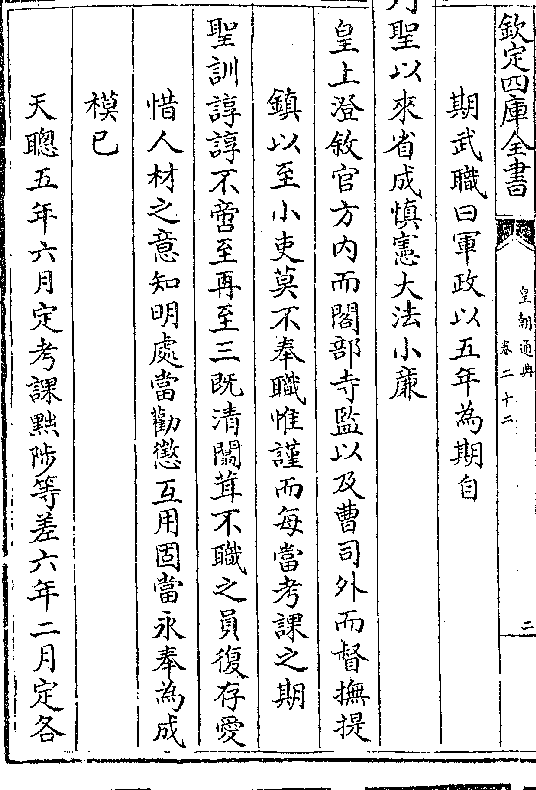 欽定四庫全書
皇朝通典
卷二十二
二
期武職曰軍政以五年為期自
列聖以來省成慎憲大法小亷
皇上澄敘官方内而閣部寺監以及曹司外而督撫提
鎮以至小吏莫不奉職惟謹而每當考課之期
聖訓諄諄不啻至再至三既清闒茸不職之員復存愛
惜人材之意知明處當勸懲互用固當永奉為成
模已
天聰五年六月定考課黜陟等差六年二月定各